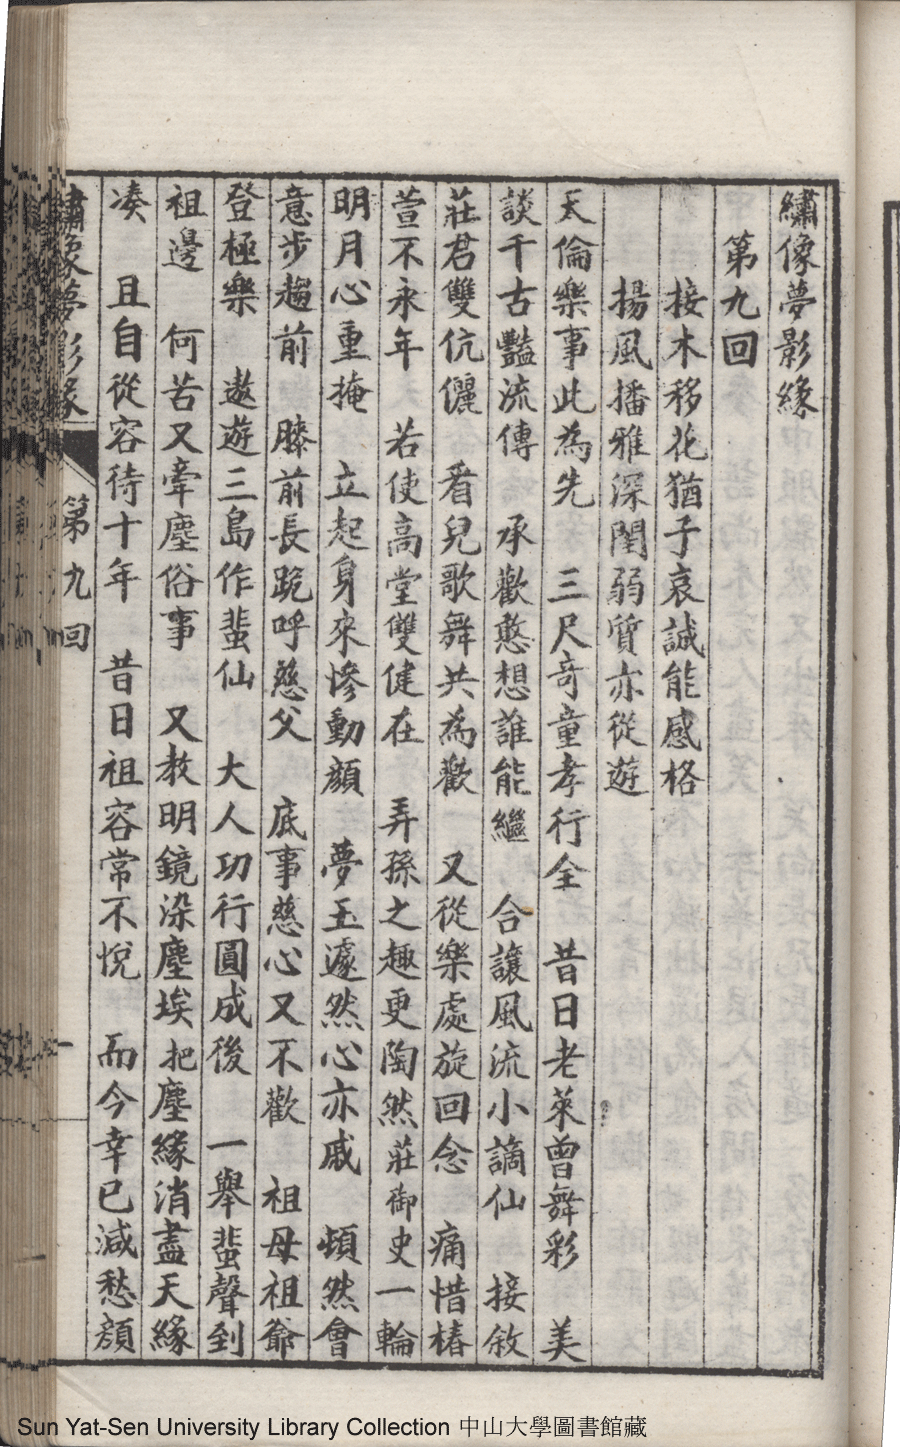 繡像夢影緣
第九回
接木移花猶子哀誠能感格
揚風播雅深閨弱質亦從遊
天倫樂事此為先　三尺竒童孝行全　昔日老萊曾舞彩　美
談千古豔流傳　承歡憨想誰能繼　合讓風流小謫仙　接敘
莊君雙伉儷　看兒歌舞共為歡　又從樂處旋回念　痛惜椿
萱不永年　若使高堂雙健在　弄孫之趣更陶然莊御史一輪
明月心重掩　立起身來慘動顏　夢玉遽然心亦戚　頓然會
意步趨前　膝前長跪呼慈父　底事慈心又不歡　祖母祖爺
登極樂　遨遊三島作蜚仙　大人功行圓成後　一舉蜚聲到
祖邊　何苦又牽塵俗事　又教明鏡染塵埃把塵緣消盡天緣
凑　且自從容待十年　昔日祖容常不悅　而今幸已減愁顏
繡像夢影緣　第九回
Sun Yat-Sen University Library Collection 中山大學圖書館藏